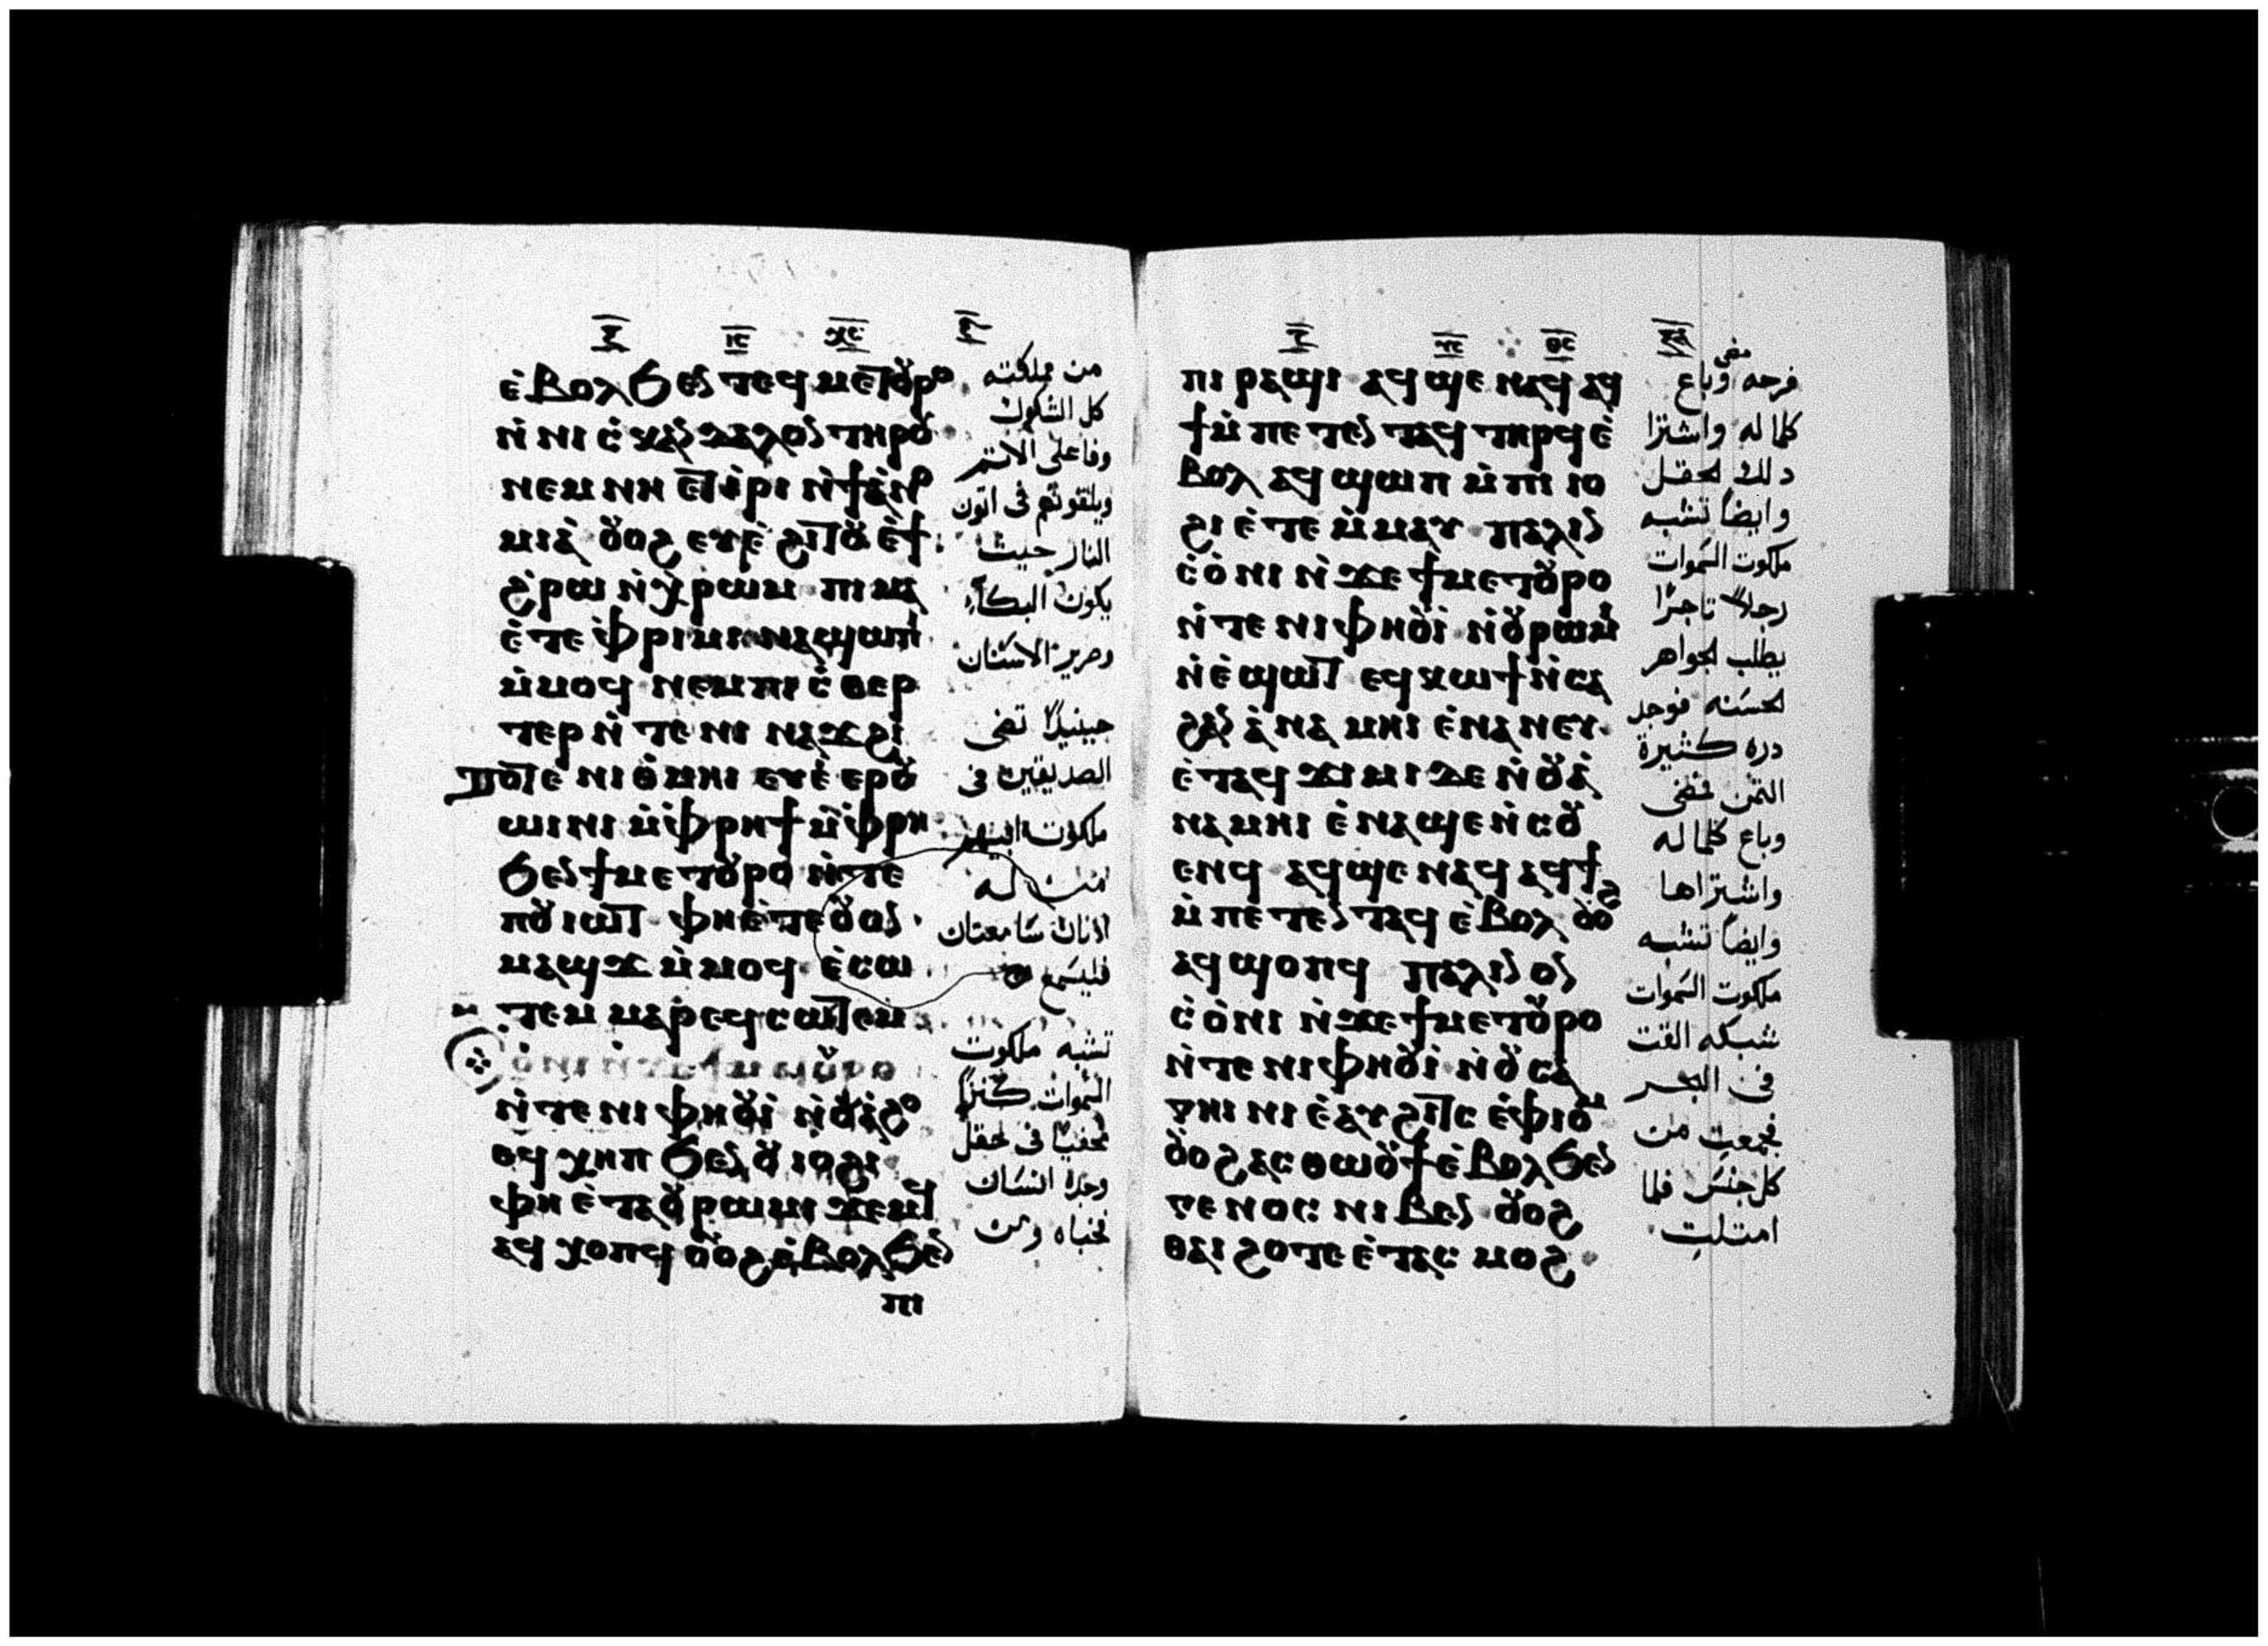 ⲓ̅ⲥ̅ ⲭ̅ⲥ̅
ⲉ̀ⲃⲟⲗϧⲉⲛ ⲧⲉϥⲙⲉⲧⲟⲩⲣⲟ
ⲛ̀ⲛⲓⲥ̀ⲕⲁⲛⲇⲁⲗⲟⲛ ⲧⲏⲣⲟⲩ
ⲛⲉⲙ ⲛⲏ ⲉⲧⲓ̀ⲣⲓ ⲛ̀ϯⲁ̀ⲛⲟ
ⲙⲓⲁ̀ ⲟⲩⲟϩ ⲉⲩⲉ̀ϩⲓⲧⲟⲩ ⲉ̀ϯ
ϩ̀ⲣⲱ ⲛ̀ⲭ̀ⲣⲱⲙ ⲡⲓⲙⲁ
ⲉ̀ⲧⲉ ⲫ̀ⲣⲓⲙⲓ ⲛⲁϣⲱⲡⲓ
ⲙ̀ⲙⲟϥ ⲛⲉⲙ ⲡⲓⲥ̀ⲑⲉⲣ
ⲧⲉⲣ ⲛ̀ⲧⲉ ⲛⲓ ⲛⲁϫϩⲓ
ⲧⲟⲧⲉ ⲛⲓⲑ̀ⲙⲏⲓ ⲉⲩⲉ̀ⲉⲣⲟⲩ
ⲱⲓⲛⲓ ⲙ̀ⲫ̀ⲣⲏϯ ⲙ̀ⲫ̀ⲣⲏ
ϧⲉⲛ ϯⲙⲉⲧⲟⲩⲣⲟ ⲛ̀ⲧⲉ
ⲡⲟⲩⲓⲱⲧ ⲫⲏⲉ̀ⲧⲉ ⲟⲩⲟⲛ
ⲙⲁϣϫ ⲙ̀ⲙⲟϥ ⲉ̀ⲥⲱ
ⲧⲉⲙ ⲙⲁⲣⲉϥⲥⲱⲧⲉⲙ
ⲛ̀ⲧⲉ ⲛⲓⲫⲏⲟⲩⲓ̀ ⲛ̀ⲟⲩⲁ̀ϩⲟ
ⲉϥⲭⲏⲡ ϧⲉⲛ ⲟⲩⲓⲟϩⲓ
ⲫⲏ ⲉ̀ⲧⲁⲟⲩⲣⲱⲙⲓ ϫⲉⲙϥ
ⲁϥⲭⲟⲡϥ ⲟⲩⲟϩ ⲉ̀ⲃⲟⲗϧⲉⲛ
ⲡⲓ
من مملكته
كل الشكوك
وفاعلى الاتم
ويلقونهم فى اتون
النار حيث
يكون البكاء
وصرير الاسنان
حينيذ تضى
الصديقين فى
ملكوت ابيهم
من له
اذنان سامعتان
فليسمع
تشبه ملكوت
السموات كنزا
مخفيا فى لحقل
وجده انسان
فخباه ومن
ⲩ̅ⲥ̅ ⲑ̅ⲥ̅
ⲡⲓⲣⲁϣⲓ ⲁϥϣⲉ ⲛⲁϥ ⲁϥ
ϯⲙ̀ⲡⲉⲧⲉⲛⲧⲁϥ ⲧⲏⲣϥ ⲉ̀
ⲃⲟⲗ ⲁϥϣⲱⲡ ⲙ̀ⲡⲓⲓⲟ
ϩⲓ ⲉ̀ⲧⲉ ⲙ̀ⲙⲁⲩ ⲡⲁⲗⲓⲛ
ⲥ̀ⲟ̀ⲛⲓ ⲛ̀ϫⲉ ϯⲙⲉⲧⲟⲩⲣⲟ
ⲛ̀ⲧⲉ ⲛⲓⲫⲏⲟⲩⲓ̀ ⲛ̀ⲟⲩⲣⲱⲙⲓ
ⲛ̀ⲉ̀ϣⲱⲧ ⲉϥⲕⲱϯ ⲛ̀ⲥⲁ
ϩⲁⲛ ⲁ̀ⲛⲁⲙⲏⲓ ⲉ̀ⲛⲁⲛⲉⲩ
ⲉ̀ⲧⲁϥϫⲓⲙⲓ ϫⲉ ⲛ̀ⲟⲩⲁ̀
ⲛⲁⲙⲏⲓ ⲉ̀ⲛⲁϣⲉⲛ̀ⲥⲟⲩ
ⲉⲛϥ ⲁϥϣⲉ ⲛⲁϥ ⲁϥϯ
ⲙ̀ⲡⲉⲧⲉⲛⲧⲁϥ ⲉ̀ⲃⲟⲗ ⲟⲩⲟϩ
ⲁϥϣⲟⲡϥ ⲡⲁⲗⲓⲛ ⲟⲛ
ⲥ̀ⲟ̀ⲛⲓ ⲛ̀ϫⲉ ϯⲙⲉⲧⲟⲩⲣⲟ
ⲛ̀ⲧⲉ ⲛⲓⲫⲏⲟⲩⲓ̀ ⲛ̀ⲟⲩⲥⲁ
ⲅⲏⲛⲓ ⲉ̀ⲁⲩϩⲓⲧⲥ ⲉ̀ⲫⲓⲟⲙ
ⲟⲩⲟϩ ⲁⲥⲑⲱⲟⲩϯ ⲉ̀ⲃⲟⲗϧⲉⲛ
ⲅⲉⲛⲟⲥ ⲛⲓⲃⲉⲛ ⲟⲩⲟϩ
ⲑⲁⲓ ϩⲟⲧⲉ ⲉ̀ⲧⲁⲥ ⲙⲟϩ
فرحه مضى وباع
كلما له واشترا
دلك لحقل
وايضا تشبه
ملكوت السموات
رجلا تاجرا
يطلب لجواهر
لحسنه فوجد
دره كثيرة
التمن فمضى
وباع كلما له
واشتراها
وايضا تشبه
ملكوت السموات
شبكه القت
فى البحر
فجمعت من
كل جنس فلما
امتلت